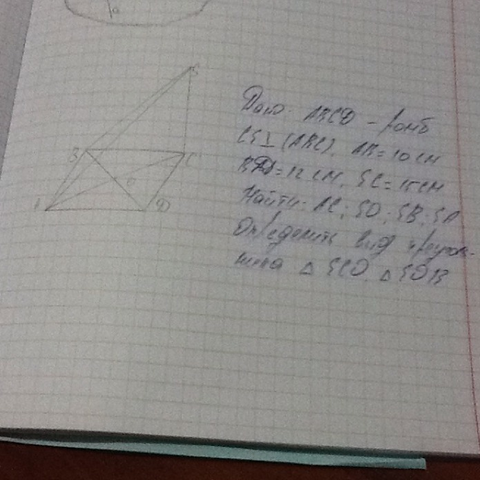 S
B C
O
A D
Дано: ABCD - ромб
CS⊥(ABC). AB=10см
BD=12см, SC=15см
Найти: AC; SO; SB; SA
Определить вид треуголь-
ника △ SCO. △ SOB